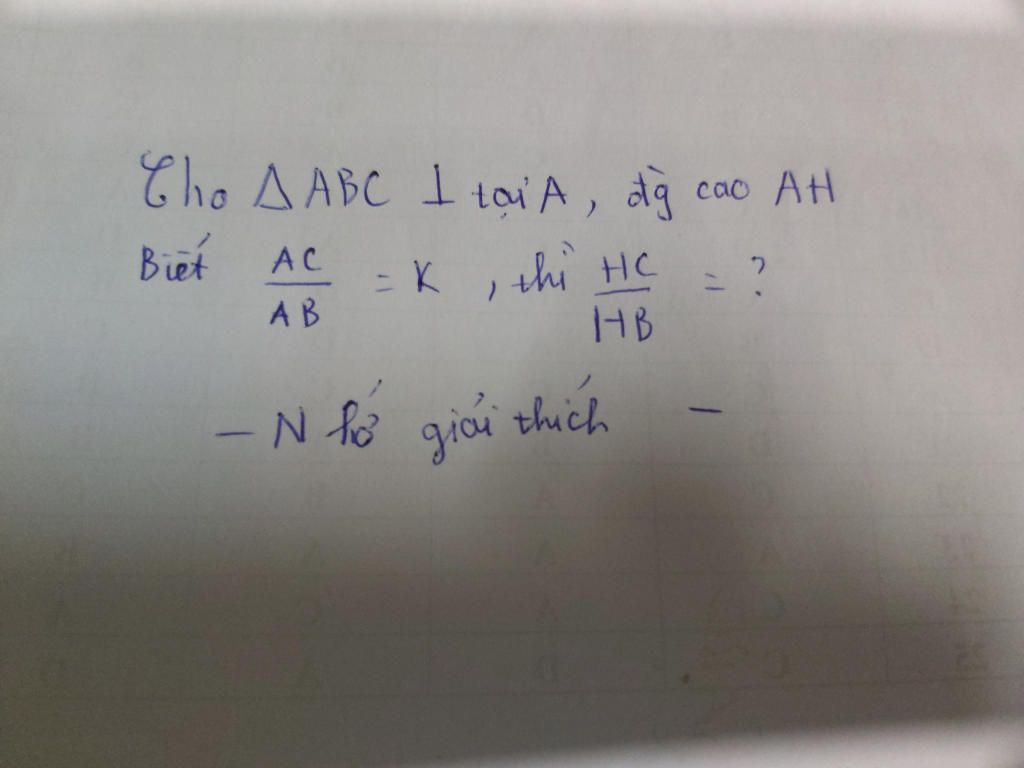 Cho ΔABC ⊥ tại A, đg̀ cao AH
Biết AC/AB = K, thì HC/HB = ?
- Nhớ giải thích -